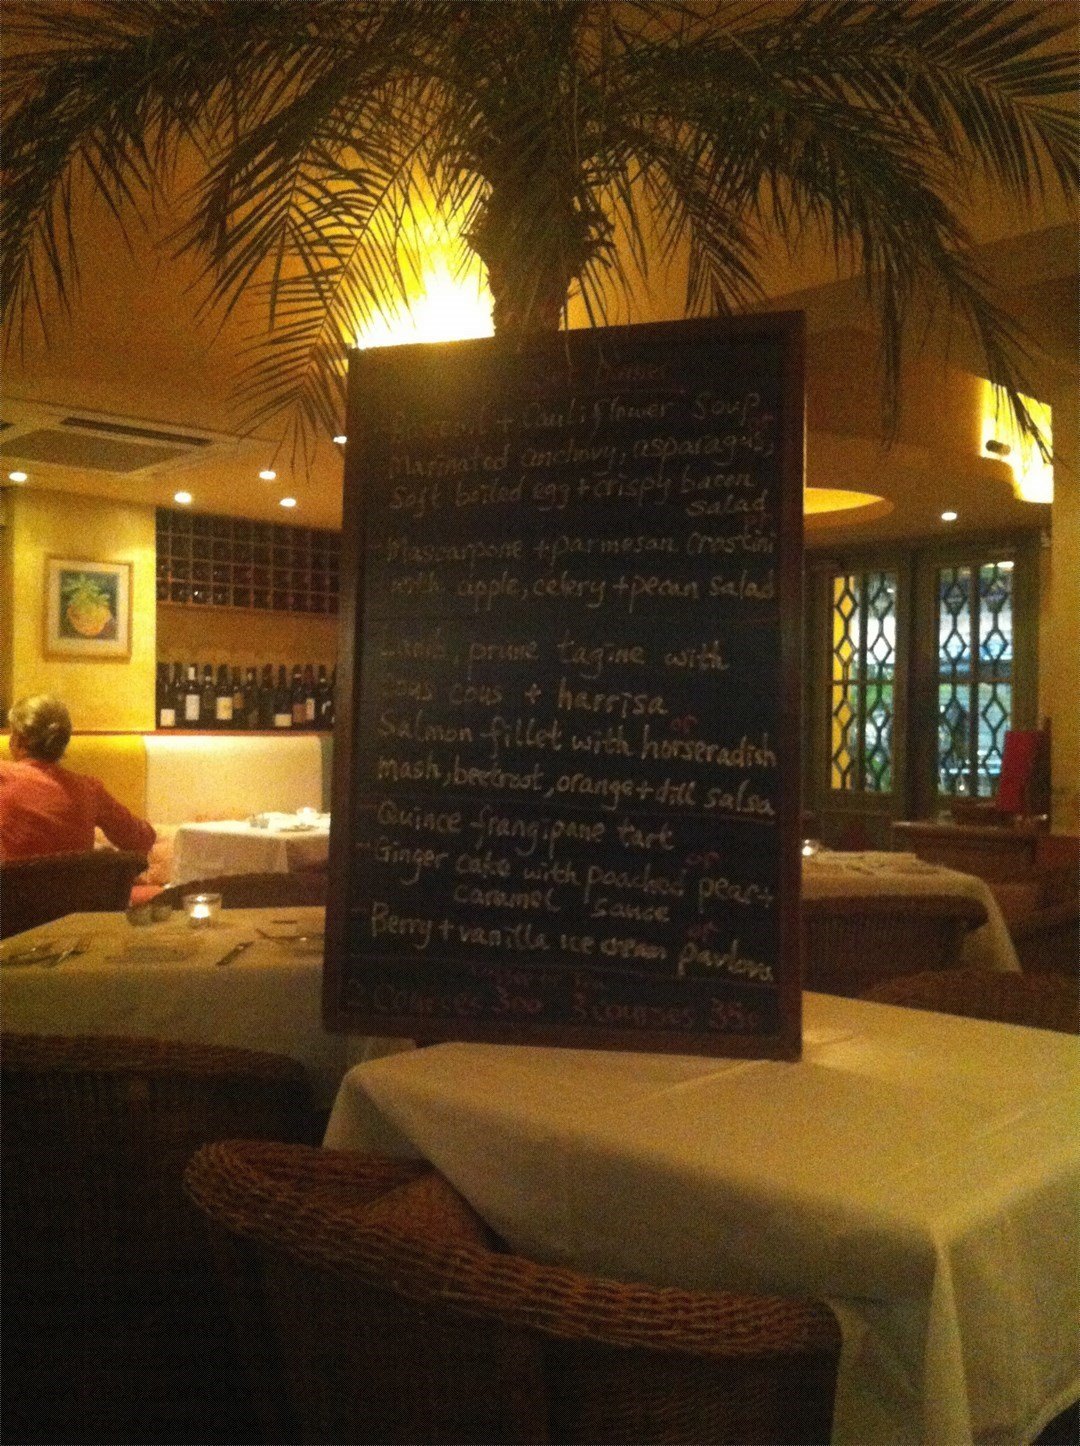 Set Dinner
+ Cauliflower Soup
or
Marinated anchovy, asparagus,
soft boiled egg + crispy bacon
salad
or
Mascarpone + parmesan crostini
with apple, celery + pecan salad
Lamb, prune tagine with
cous cous + harrisa
or
Salmon fillet with horseradish
mash, beetroot, orange + dill salsa
- Quince frangipane tart
or
- Ginger cake with poached pear +
caramel sauce
or
- Berry + vanilla ice cream pavlova
2 courses 300 3 courses 350